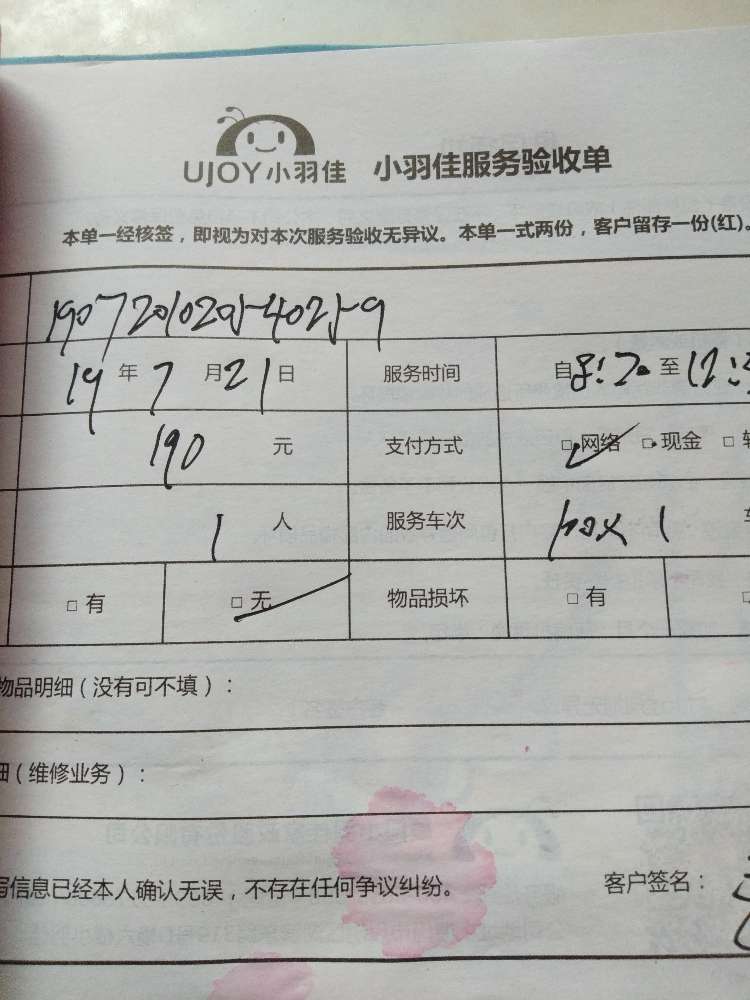 UJOY小羽佳 小羽佳服务验收单
本单一经核签，即视为对本次服务验收无异议。本单一式两份，客户留存一份(红)。
19年7月21日 服务时间 自8:20至12:
190元 支付方式 □网络 □现金 □
1人 服务车次 1
□有 □无 物品损坏 □有
物品明细（没有可不填）：
细（维修业务）：
写信息已经本人确认无误，不存在任何争议纠纷。 客户签名：